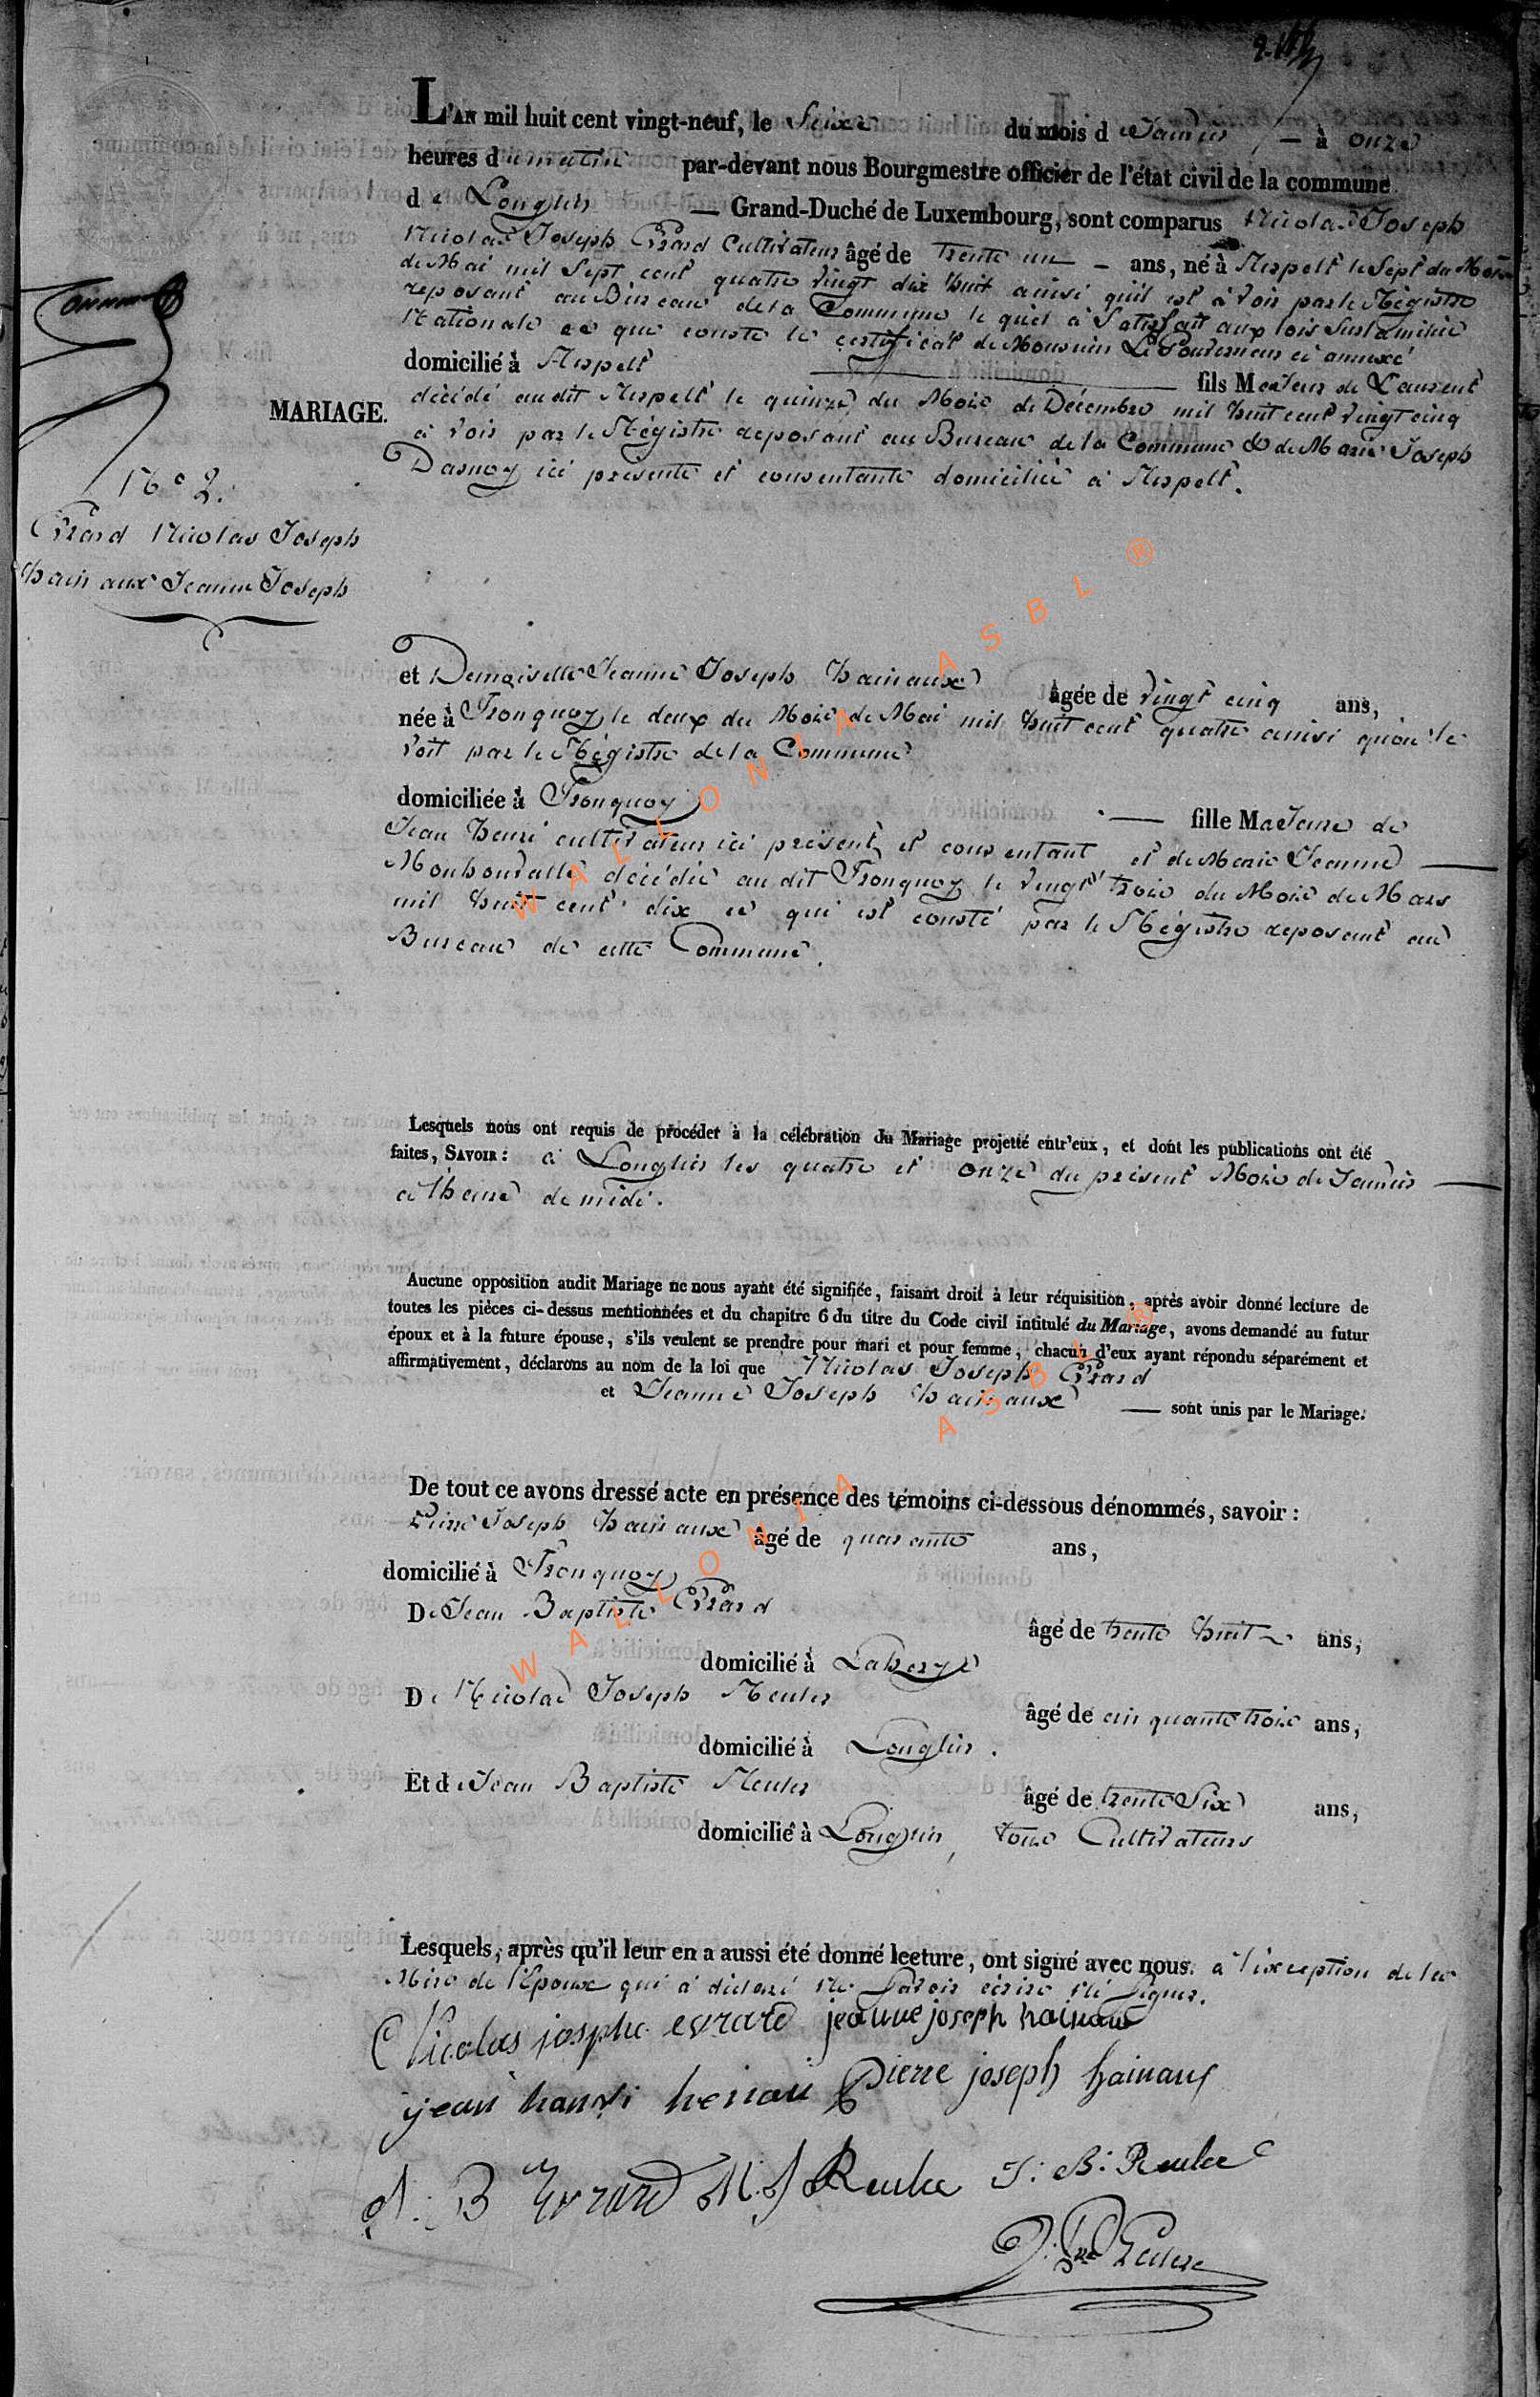 L'AN mil huit cent vingt-neuf, le Seize du mois d Janvier — à onze
heures du matin par-devant nous Bourgmestre officier de l'état civil de la commune
de Longlier — Grand-Duché de Luxembourg, sont comparus Nicolas Joseph
Nicolas Joseph Evrard Cultivateur âgé de trente un — ans, né à Respelt le Sept du Mois
de Mai mil Sept cent quatre vingt dix huit ainsi qu'il est à voir par le Régistre
reposant au Bureau de la Commune le quel à Satisfait aux lois Sur la milice
Nationale ce que conste le certificat de Monsieur Le Gouverneur ci annexé
domicilié à Respelt — fils Majeur de Laurent
décédé au dit Respelt le quinze du Mois de Décembre mil huit cent vingt cinq
à voir par le Régistre reposant au Bureau de la Commune & de Marie Joseph
Dasnoy ici présente et consentante domiciliée à Respelt.
MARIAGE.
N° 2.
Evrard Nicolas Joseph
hainaux Jeanne Joseph
et Demoiselle Jeanne Joseph hainaux âgée de vingt cinq ans,
née à Tronquoy le deux du Mois de Mai mil huit cent quatre ainsi qu'on le
voit par le Régistre de la Commune
domiciliée à Tronquoy — fille Majeure de
Jean henri cultivateur ici présent et consentant et de Marie Jeanne —
décédée au dit Tronquoy le vingt trois du Mois de Mars
mil huit cent dix ce qui est consté par le Régistre reposant au
Bureau de cette Commune.
Lesquels nous ont requis de procéder à la célébration du Mariage projetté entr'eux, et dont les publications ont été
faites, SAVOIR: à Longlier les quatre et onze du présent Mois de Janvier —
à l'heure de midi.
Aucune opposition audit Mariage ne nous ayant été signifiée, faisant droit à leur réquisition, après avoir donné lecture de
toutes les pièces ci-dessus mentionnées et du chapitre 6 du titre du Code civil intitulé du Mariage, avons demandé au futur
époux et à la future épouse, s'ils veulent se prendre pour mari et pour femme, chacun d'eux ayant répondu séparément et
affirmativement, déclarons au nom de la loi que Nicolas Joseph Evrard
et Jeanne Joseph hainaux — sont unis par le Mariage.
De tout ce avons dressé acte en présence des témoins ci-dessous dénommés, savoir:
Pierre Joseph hainaux âgé de quarante ans,
domicilié à Tronquoy
De Jean Baptiste Evrard âgé de trente huit ans,
domicilié à Laherye
De Nicolas Joseph Reuler âgé de cinquante trois ans,
domicilié à Longlier.
Et de Jean Baptiste Reuler âgé de trente Six ans,
domicilié à Longlier, tous Cultivateurs
Lesquels, après qu'il leur en a aussi été donné lecture, ont signé avec nous. à l'exception de la
Mère de l'Epoux qui à déclaré ne Savoir écrire ni Signer.
Nicolas josphe evrard jeanne joseph hainaux
jean hanri henau Pierre joseph hainaux
J: B Evrard N. J Reuler J: B: Reuler
WALLONIA ASBL ®
WALLONIA ASBL ®